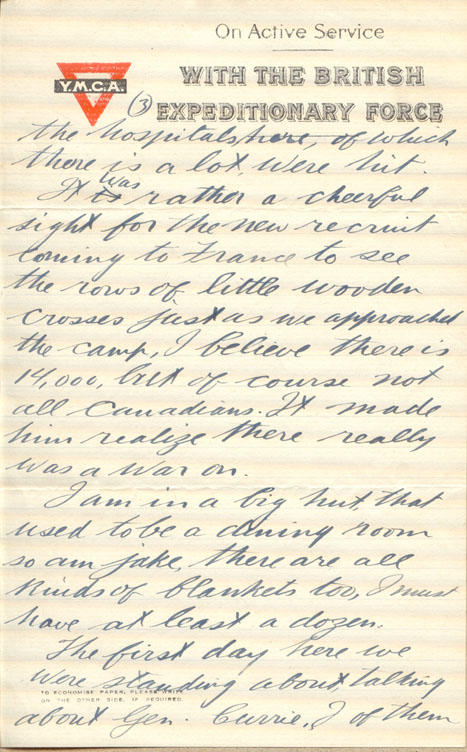 On Active Service
WITH THE BRITISH
Y.M.C.A.
(3) EXPEDITIONARY FORCE
the hospitals here, of which
there is a lot, were hit.
It is was rather a cheerful
sight for the new recruit
coming to France to see
the rows of little wooden
crosses just as we approached
the camp, I believe there is
14,000, but of course not
all Canadians. It made
him realize there really
was a war on.
I am in a big hut, that
used to be a dining room
so am jake, there are all
kinds of blankets too, I must
have at least a dozen.
The first day here we
were standing about, talking
TO ECONOMISE PAPER, PLEASE WRITE
ON THE OTHER SIDE, IF REQUIRED.
about Gen. Currie, of them